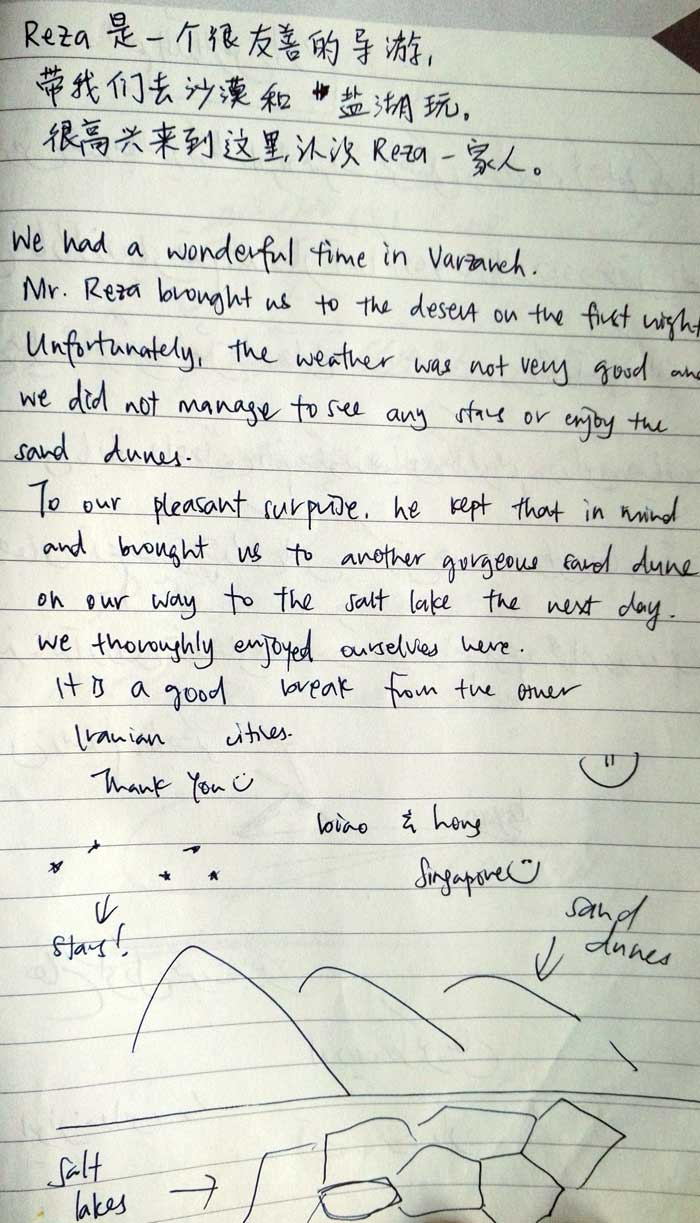 Reza 是一个很友善的导游,
带我们去沙漠和 盐湖玩。
很高兴来到这里,认识 Reza 一家人。
We had a wonderful time in Varzaneh.
Mr. Reza brought us to the desert on the first night
Unfortunately, the weather was not very good and
we did not manage to see any stars or enjoy the
sand dunes.
To our pleasant surprise, he kept that in mind
and brought us to another gorgeous sand dune
on our way to the salt lake the next day.
we thoroughly enjoyed ourselves here.
It is a good break from the other
Iranian cities.
Thank you
& hong
Singapore
stars!
sand
dunes
Salt
lakes